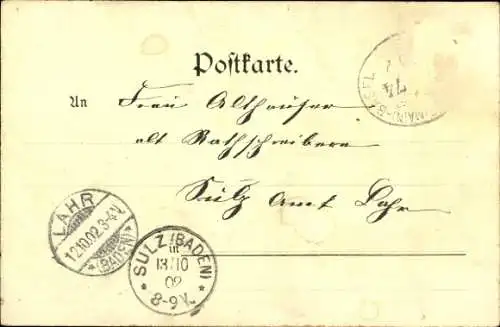 Postkarte.
An Frau Althauser
alt Rathschreibers
Sulz Amt Lahr
LAHR
12.10.02.3-4N.
* (BADEN) *
* SULZ (BADEN) *
in
13/10
02
8-9V.
(MAIN)-BASEL